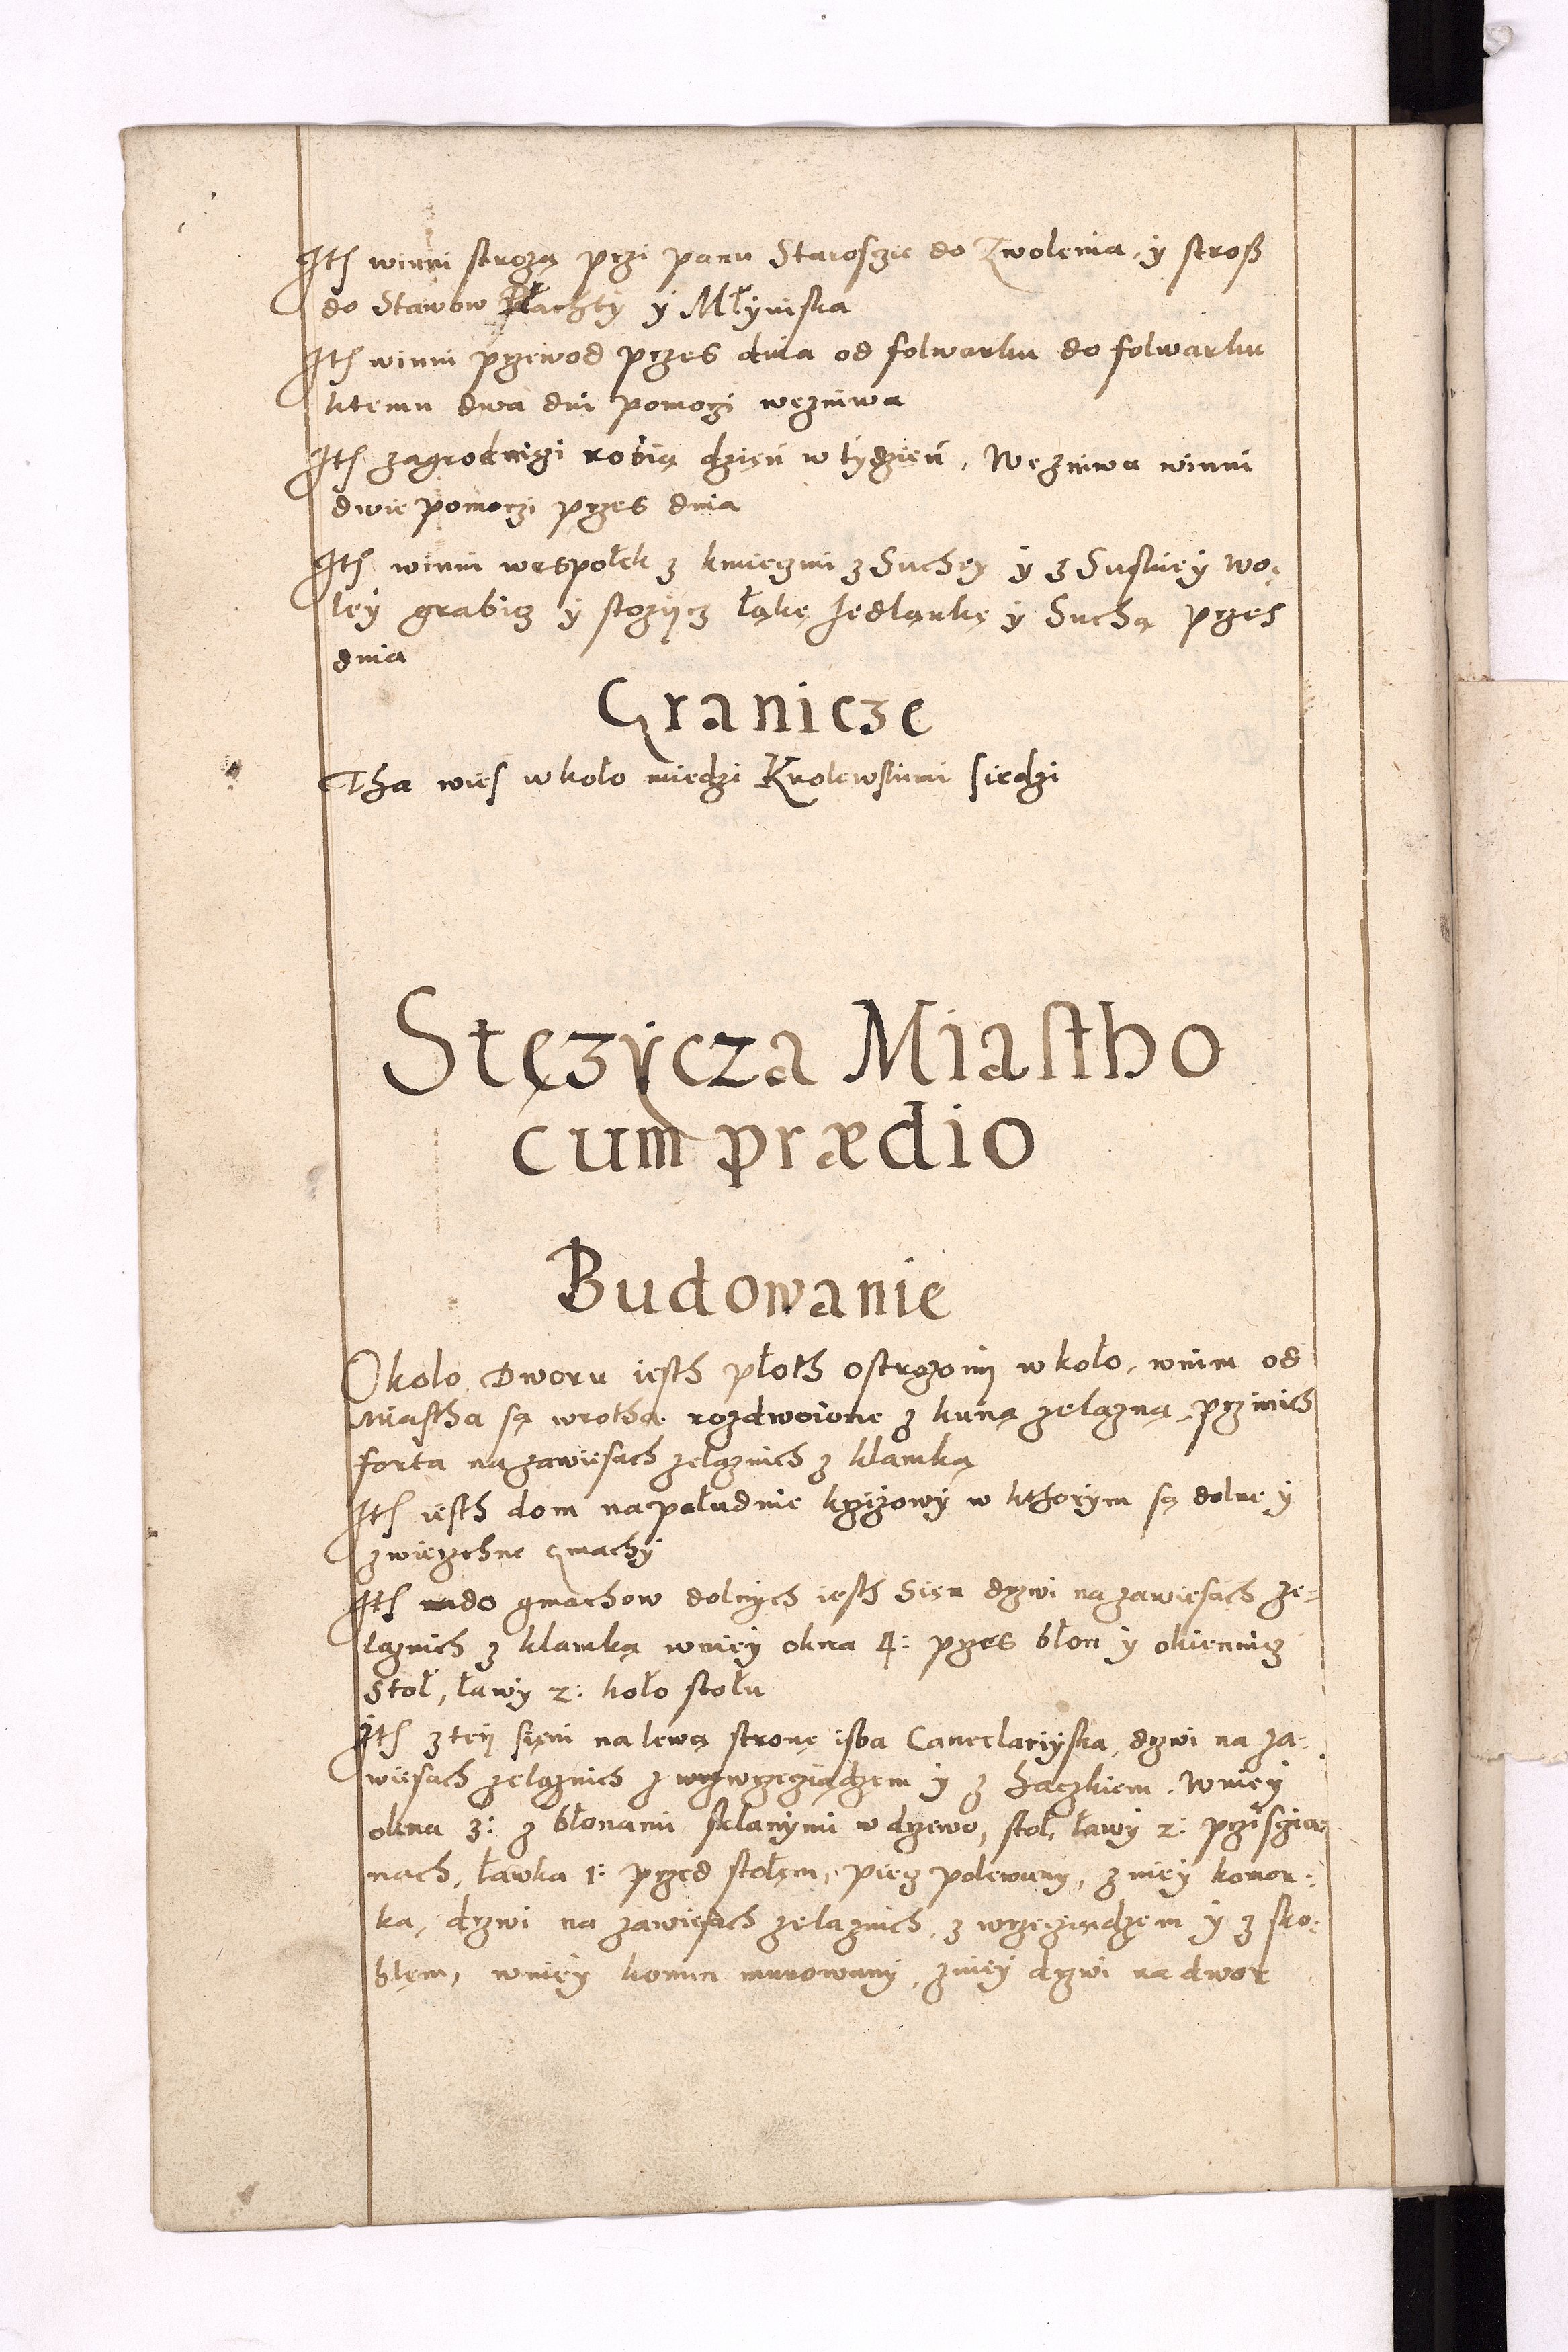 Ith winni strożą przi panu Starosczie do Zwolenia, y stroß
do Stawow Płachty y Młyniska
Ith winni przewod przes dnia od folwarku do folwarku
ktemu dwa dni pomoczi wezniwa
Ith zagrodniczi robią dzięń w tydzięń, We zniwa winni
dwie pomoczi przes dnia
Ith winni wespołek z kmieczmi z Suchey y z Suskiey wo-
ley grabicz y stozycz łąkę Jedlankę y Suchą przes
dnia
Granicze
Tha wies wkoło miedzi Krolewskimi siedzi
Stęzycza Miastho
cum prædio
Budowanie
Okolo Dworu iesth płoth ostrzony wkoło, wnim od
Miastha są wrotha rozdwoione z kuną zelazną, prznich
forta na zawiesach zelaznich z klamką
Ith iesth dom na południe krzizowy w kthorym są dolne y
zwierzchne gmachy
Ith do gmachow dolnych iesth Sięn drzwi na zawiesach ze-
laznich z klamką wniey okna 4: przes błon y okiennicz
Stoł, ławy 2: koło stołu
Ith z teii sięni na lewą stronę isba Cancelariyska, drzwi na za-
wiesach zelaznich z wrzecziądzem y z haczkiem. Wniey
okna 3: z błonami sklanymi w drzewo, stoł, ławy 2: przisczia-
nach, ławka 1: przed stołęm, piecz polewany, z niey komor-
ka, drzwi na zawiesach zelaznich, z wrzecziądzem y z sko-
blęm, wniey komin murowany, zniey drzwi na dwor